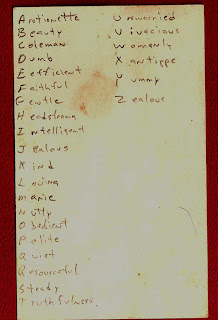 Antionette
Beauty
Coleman
Dumb
Eefficient
Faithful
Gentle
Headstrong
Intelligent
Jealous
Kind
Loving
Manic
Nutty
Obedient
Polite
Quiet
Resourceful
Steady
Truthfulness
Unworried
Vivacious
Womanly
Xantippe
Yummy
Zealous